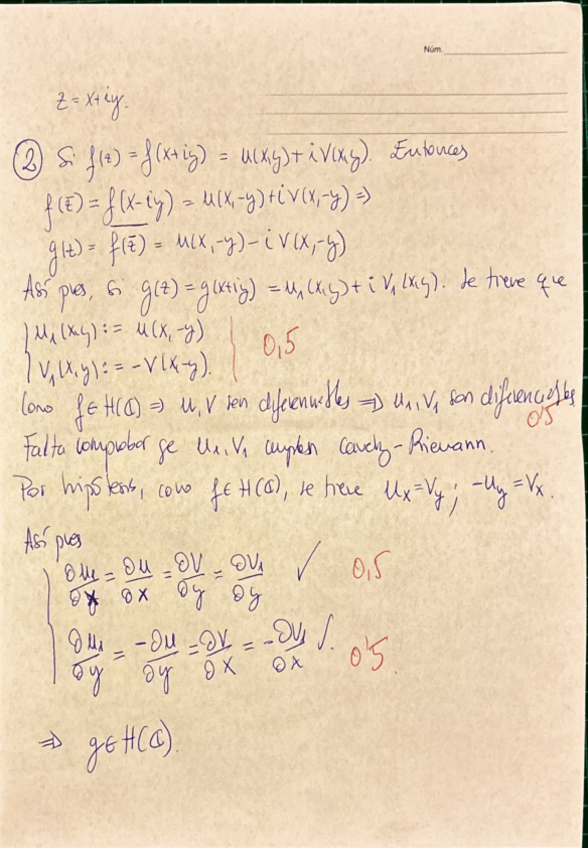 Núm.
z = x+iy.
② Si f(z) = f(x+iy) = u(x,y) + i v(x,y). Entonces
f(z̄) = f(x-iy) = u(x,-y) + i v(x,-y) ⇒
g(z) = \overline{f(z̄)} = u(x,-y) - i v(x,-y)
Así pues, si g(z) = g(x+iy) = u₁(x,y) + i v₁(x,y). Se tiene que
u₁(x,y) := u(x,-y)
v₁(x,y) := -v(x,-y). 0,5
Como f∈H(ℂ) ⇒ u, v son diferenciables ⇒ u₁, v₁ son diferenciables
0'5
Falta comprobar qe u₁, v₁ cumplen Cauchy-Riemann.
Por hipótesis, como f∈H(ℂ), se tiene u_x = v_y ; -u_y = v_x.
Así pues
∂u₁/∂x = ∂u/∂x = ∂v/∂y = ∂v₁/∂y ✓ 0,5
∂u₁/∂y = -∂u/∂y = ∂v/∂x = -∂v₁/∂x ✓. 0'5
⇒ g∈H(ℂ).